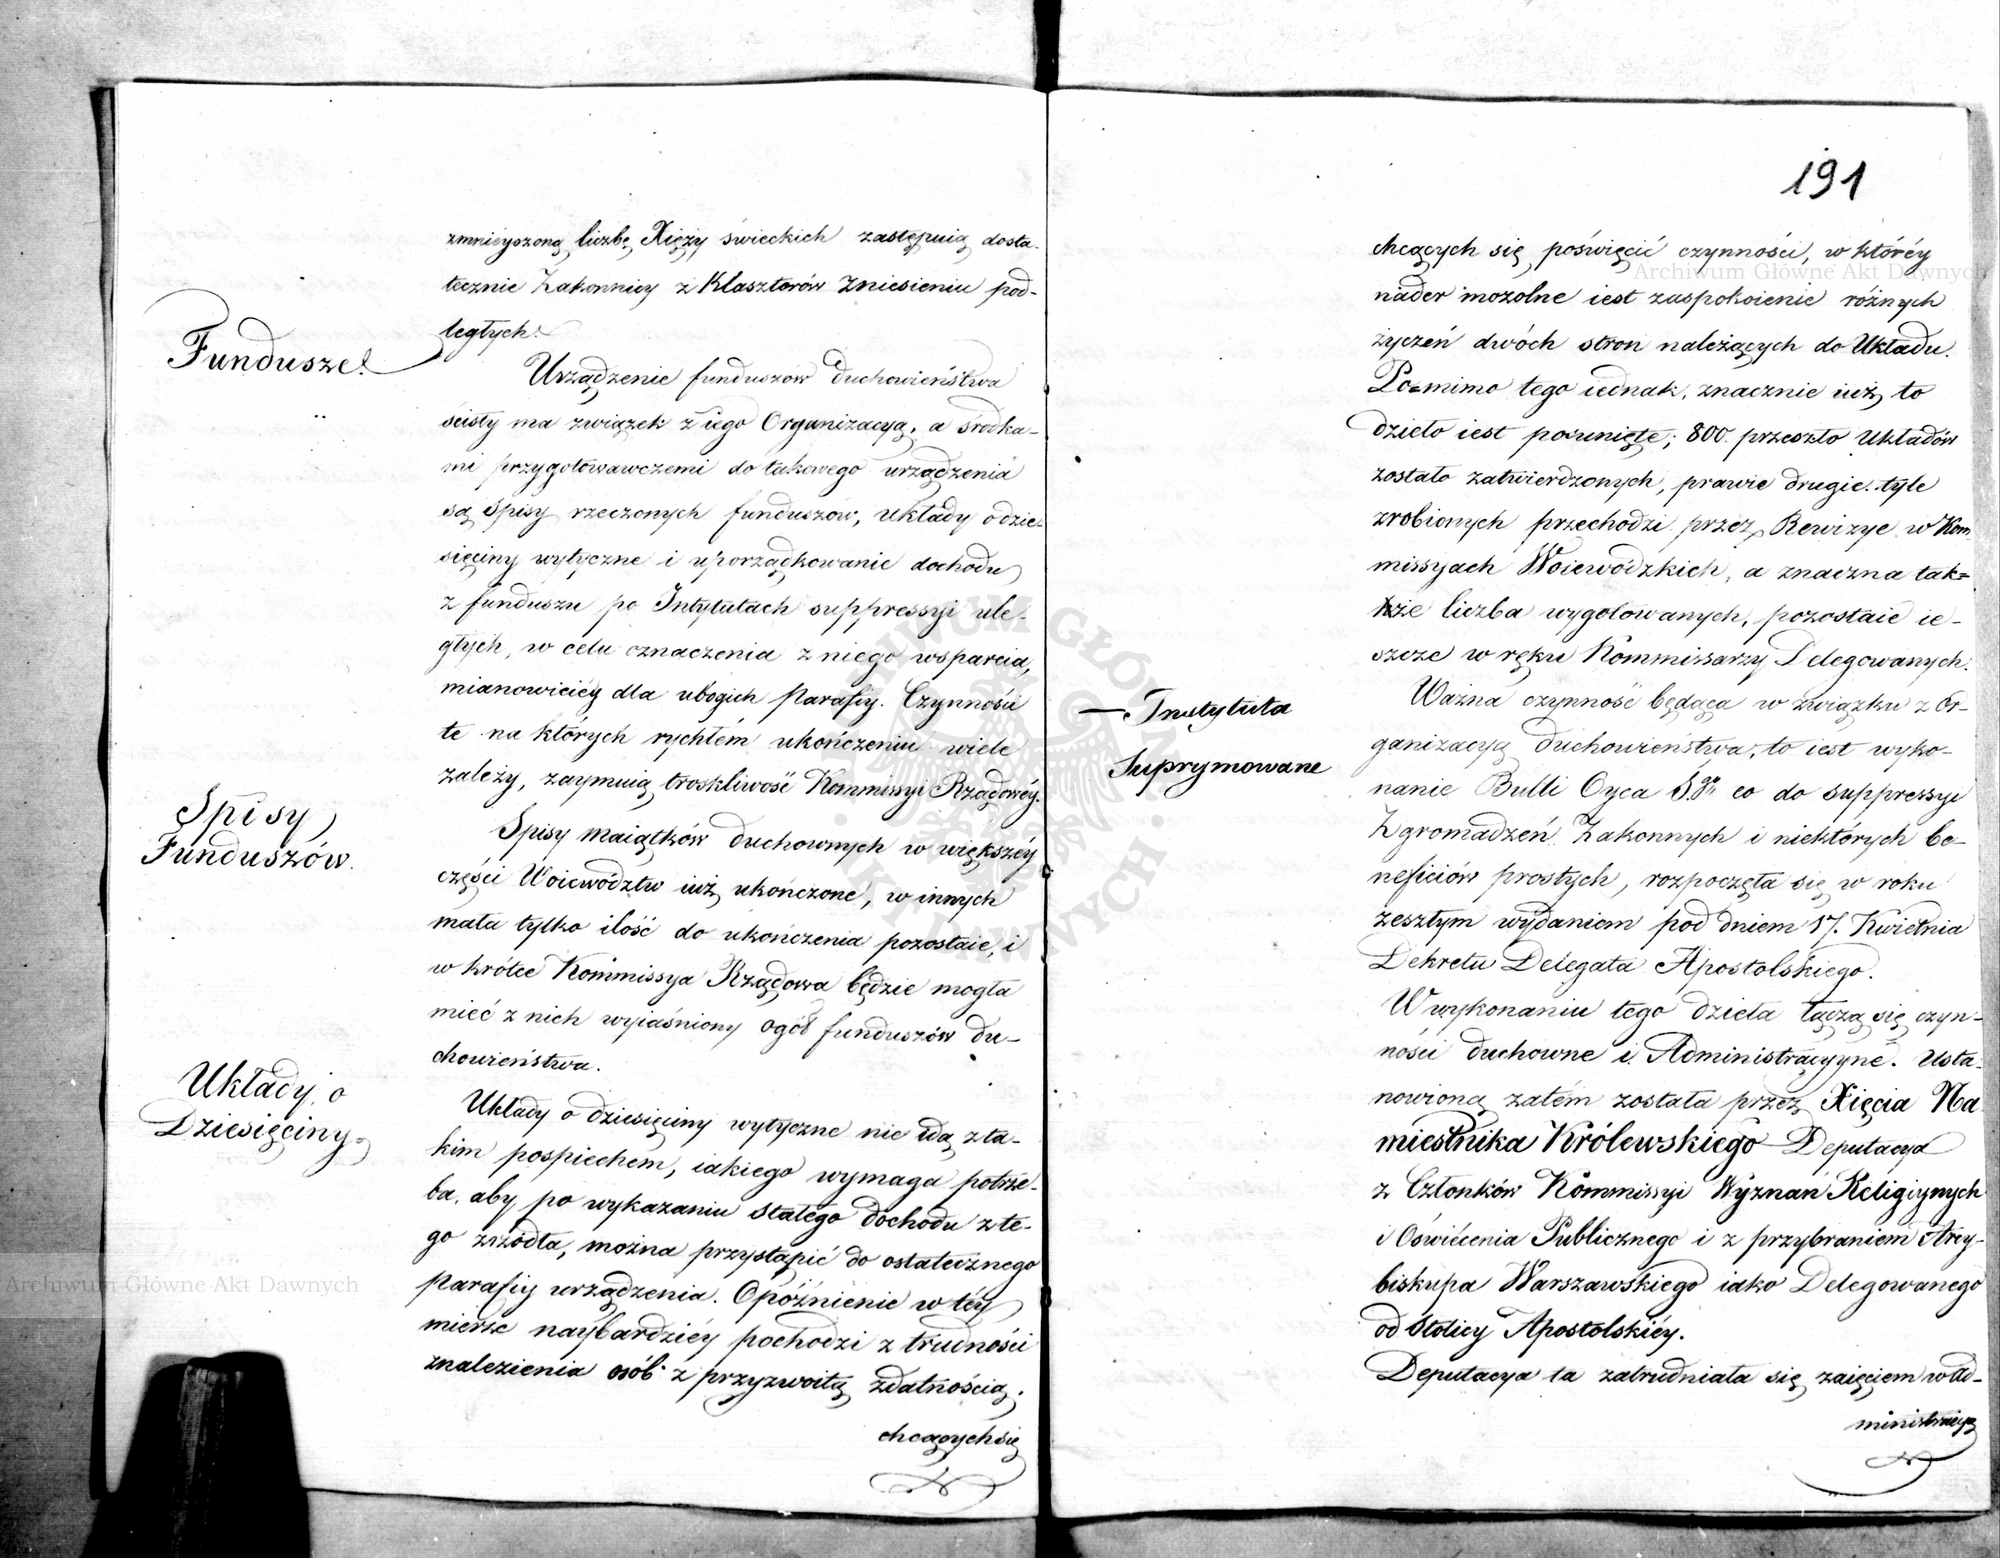 zmnieyszoną liczbę Xięży świeckich zastępuią dosta-
tecznie Zakonnicy z Klasztorów Zniesieniu pod-
ległych.
Fundusze.
Urządzenie funduszow duchowieństwa
ścisły ma związek z iego Organizacyą, a środka-
mi przygotowawczemi do takowego urządzenia
są Spisy rzeczonych funduszow, układy o dzie-
sięciny wytyczne i uporządkowanie dochodu
z funduszu po Intytutach suppressyi ule-
głych, w celu oznaczenia z niego wsparcia,
mianowiciey dla ubogich Parafiy. Czynności
te na których rychłém ukończeniu wiele
zależy, zaymuią troskliwość Kommissyi Rządowéy.
Spisy
Funduszów.
Spisy maiątków duchownych w większéy
części Woiewództw iuż ukończone, w innych
mała tylko ilość do ukończenia pozostaie, i
w krótce Kommissya Rządowa będzie mogła
mieć z nich wyiaśniony ogół funduszów du-
chowieństwa.
Układy o
Dziesięciny.
Układy o dziesięciny wytyczne nie idą z ta-
kim pospiechem, iakiego wymaga potrze-
ba, aby po wykazaniu stałego dochodu z te-
go zrzódła, można przystąpić do ostatecznego
Parafiy urządzenia. Opóźnienie w téy
mierze naybardziéy pochodzi z trudności
znalezienia osób z przyzwoitą zdatnością,
chcących się
191
chcących się poświęcić czynności, w któréy
nader mozolne iest zaspokoienie różnych
życzeń dwóch stron należących do Układu.
Pomimo tego iednak, znacznie iuż to
dzieło iest posunięte; 800. przeszło Układów
zostało zatwierdzonych, prawie drugie tyle
zrobionych przechodzi przez Rewizye w Kom
missyach Woiewódzkich, a znaczna tak=
że liczba wygotowanych, pozostaie ie-
szcze w ręku Kommissarzy Delegowanych.
— Instytuta
Suprymowane
Ważna czynność będąca w związku z Or-
ganizacyą duchowieństwa, to iest wyko-
nanie Bulli Oyca S.go co do suppressyi
Zgromadzeń Zakonnych i niektórych be-
neficiów prostych, rozpoczęła się w roku
zeszłym wydaniem pod dniem 17. Kwietnia
Dekretu Delegata Apostolskiego.
W wykonaniu tego dzieła łączą się czyn-
ności duchowne i Administracyyne. Usta-
nowioną zatém została przez Xięcia Na
miestnika Królewskiego Deputacya
z Członków Kommissyi Wyznań Religiynych
i Oświécenia Publicznego i z przybraniem Arcy-
biskupa Warszawskiego iako Delegowanego
od Stolicy Apostolskiéy.
Deputacya ta zatrudniała się zaięciem w Ad-
ministracyą
Archiwum Główne Akt Dawnych
Archiwum Główne Akt Dawnych
ARCHIWUM GŁÓWNE AKT DAWNYCH